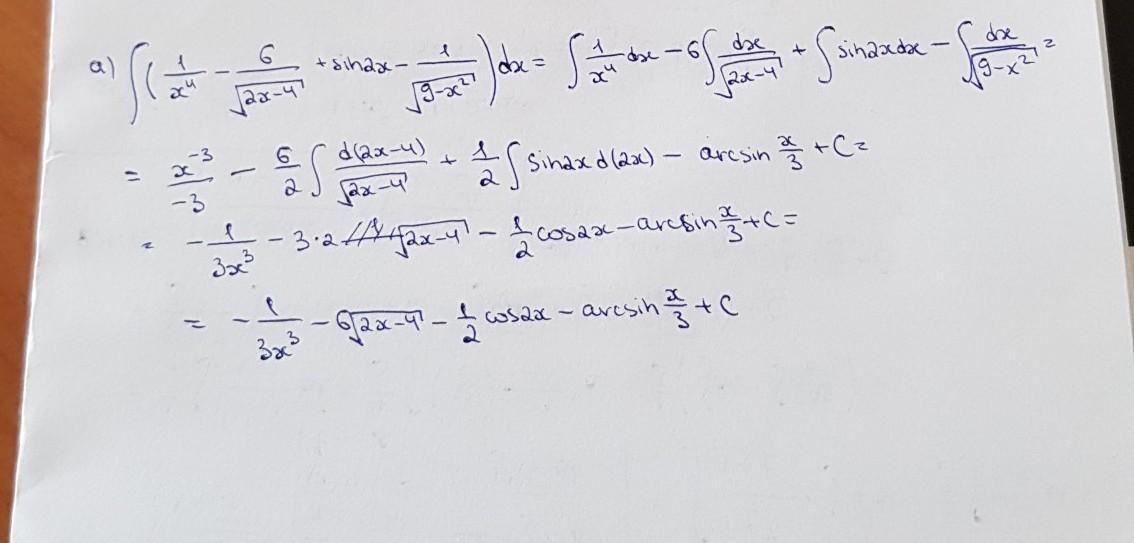 a) ∫(1/x⁴ − 6/√(2x−4) + sin2x − 1/√(9−x²))dx = ∫1/x⁴ dx − 6∫dx/√(2x−4) + ∫sin2xdx − ∫dx/√(9−x²) =
= x⁻³/−3 − 6/2 ∫d(2x−4)/√(2x−4) + 1/2 ∫sin2xd(2x) − arcsin x/3 + C =
= −1/3x³ − 3·2√(2x−4) − 1/2 cos2x − arcsin x/3 + C =
= −1/3x³ − 6√(2x−4) − 1/2 cos2x − arcsin x/3 + C